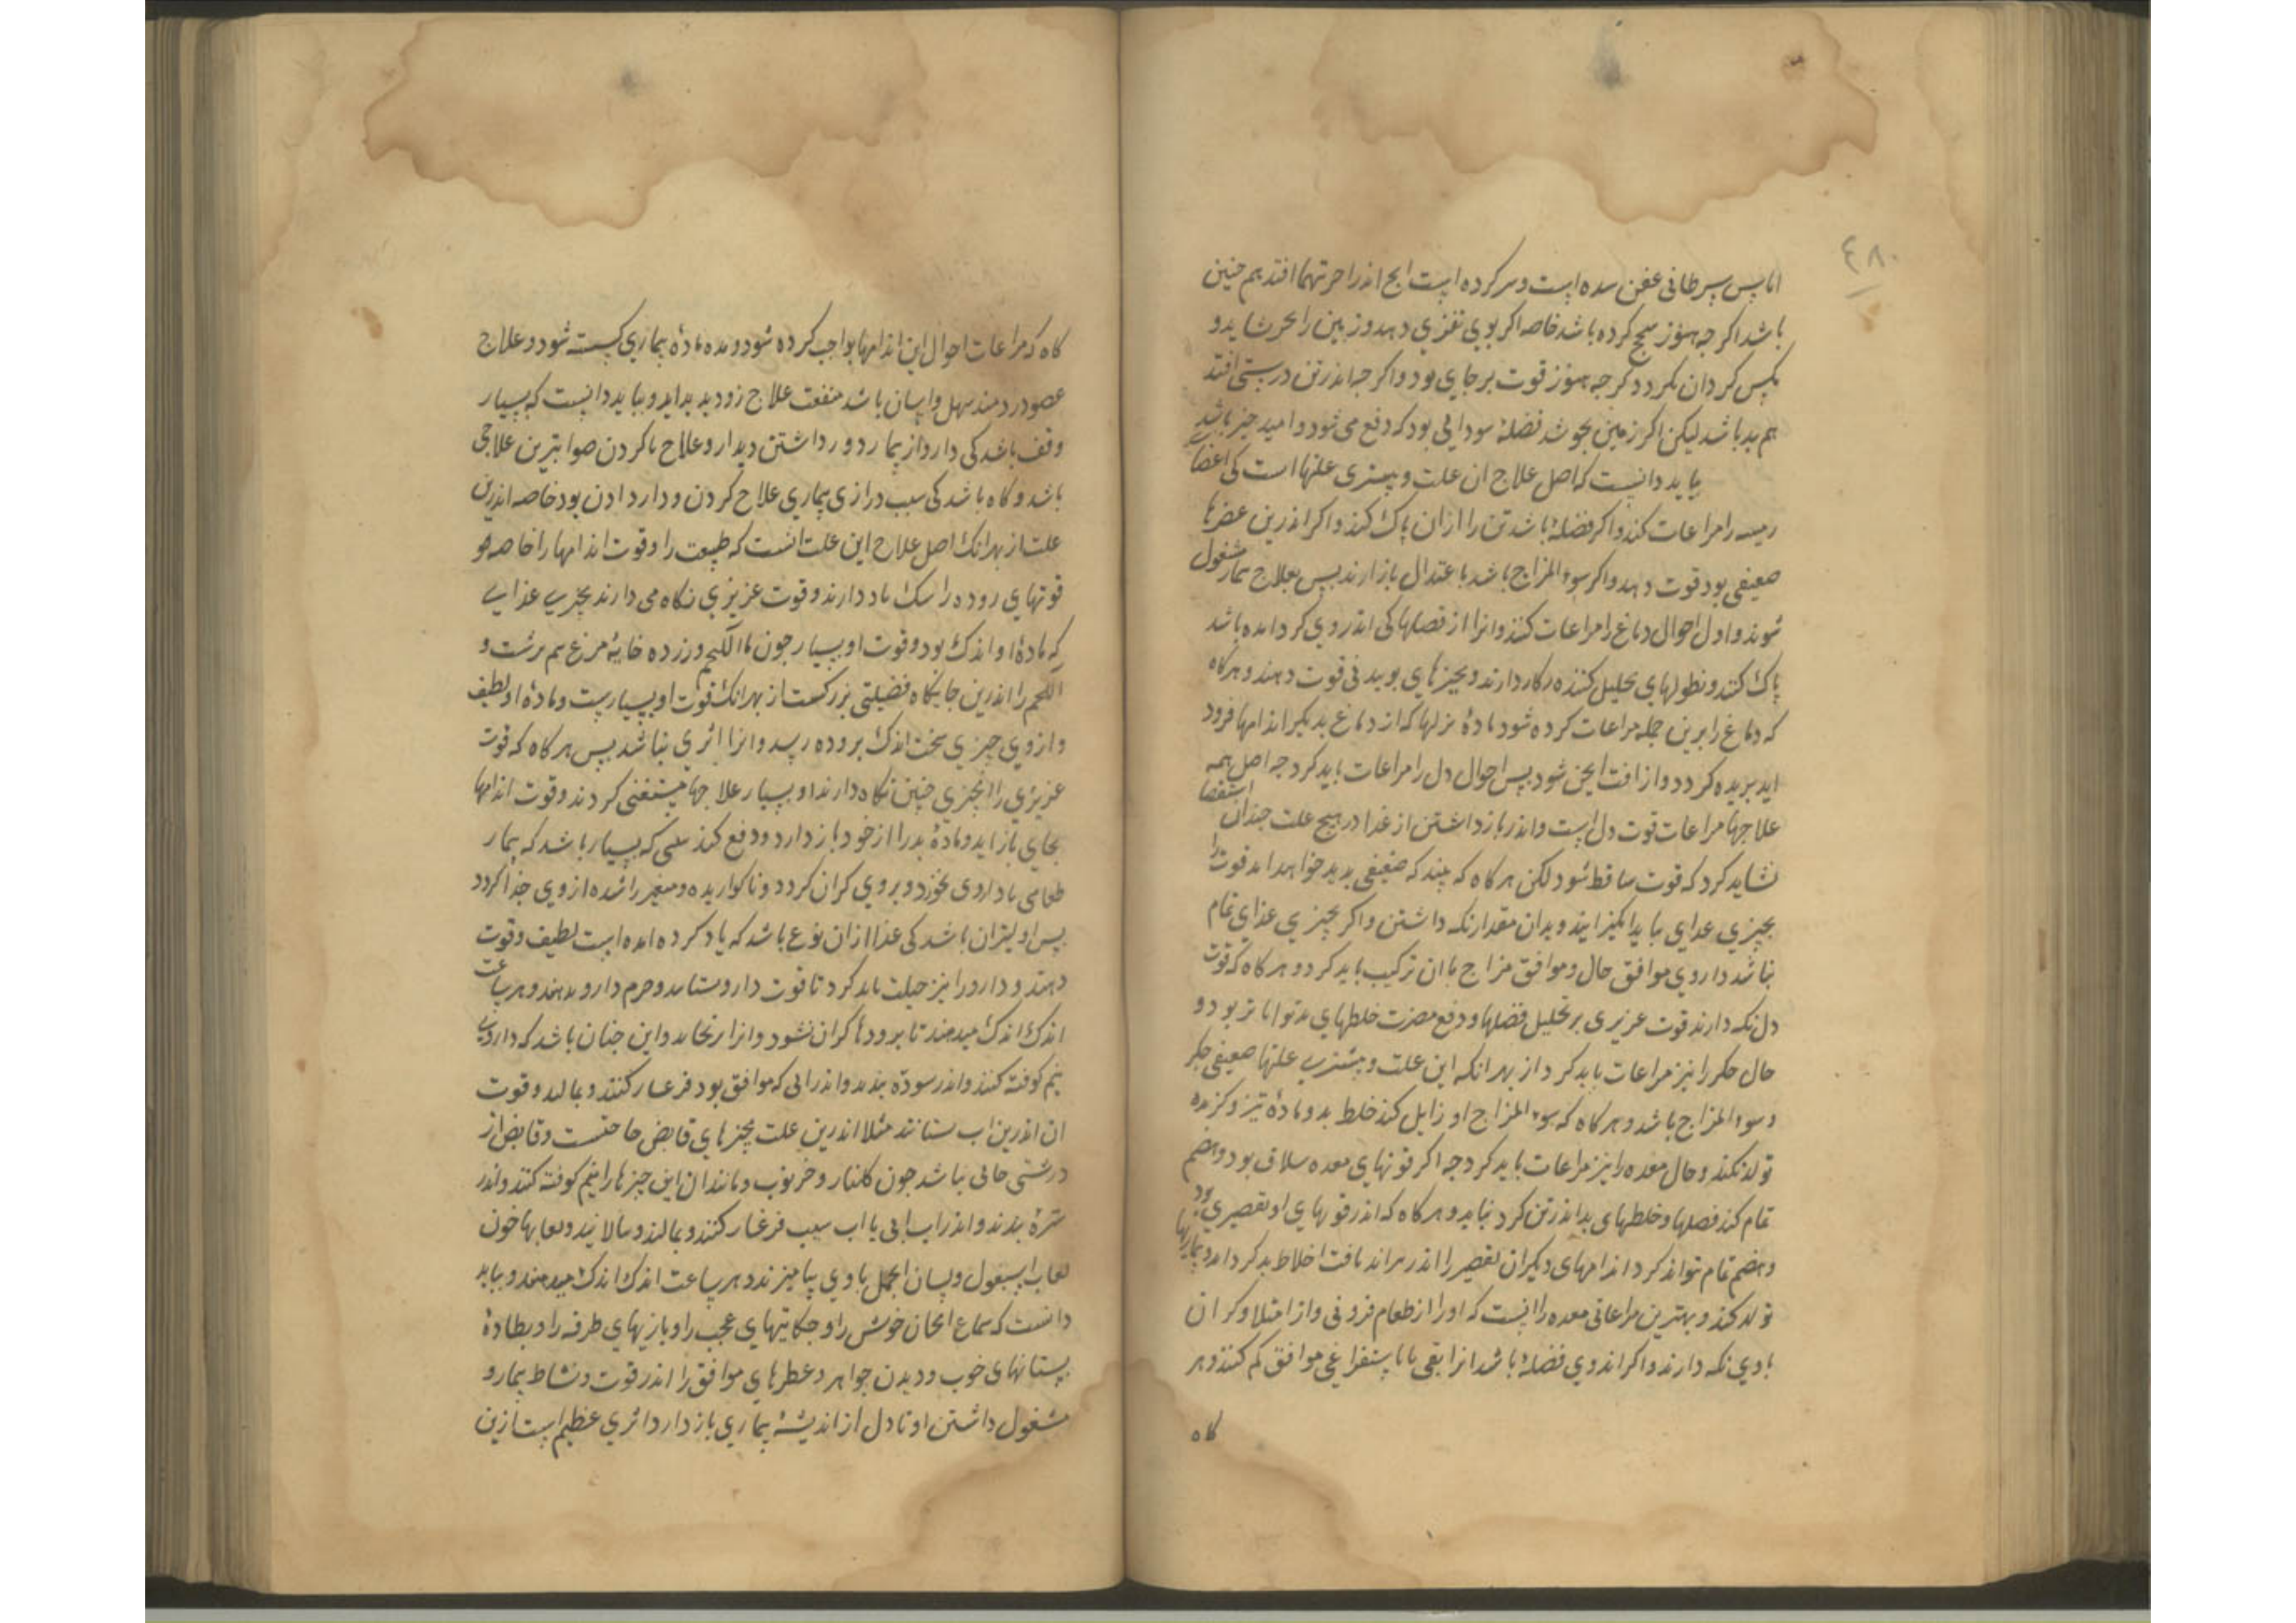 ٤٨٠
اما پس سرطانی عفن شده است و سر کرده است انج اندر احرتهما افتد هم چنین
باشد اکر جه هنوز سحج کرده باشد خاصه اکر بوی تغزی دهد و زمین را بخرشاید و
مکس کردان نکردد کرجه هنوز قوت بر جای بود و اکر جه اندر تن درستی افتد
هم بد باشد لیکن اکر زمین بجوشد فضلهٔ سودایی بود که دفع می شود و امید خیر باشد
بباید دانست که اصل علاج ان علت و بیشتری علتها است کی اعضاء
رییسه را مراعات کنند و اکر فضلهٔ باشد تن را ازان پاک کنند و اکر اندرین عضوها
ضعیفی بود قوت دهند و اکر سوء المزاج باشد با عتدال باز ارند پس بعلاج بیمار مشغول
شوند و اول احوال دماغ را مراعات کنند وانرا از فضلهای کی اندر وی کرد امده باشد
پاک کنند و نطولهای تحلیل کننده بکار دارند و بجیزهای بوییدنی قوت دهند و هرکاه
که دماغ را برین جمله مراعات کرده شود مادهٔ نزلها که از دماغ بدیکر اندامها فرود
اید بریده کردد و از افت ایمن شود پس احوال دل را مراعات باید کرد جه اصل همه
علاجها مراعات قوت دل است و اندر باز داشتن از غذا در هیج علت جندان استقصا
نشاید کرد که قوت ساقط شود لکن هرکاه که بیند که ضعیفی بدید خواهد امد قوت را
بجیزی غذای باید انکیزانید و بدان مقدار نکه داشتن و اکر بجیزی غذای تمام
نباشد داروی موافق حال و موافق مزاج با ان ترکیب باید کرد و هرکاه که قوت
دل نکه دارند قوت غریزی بر تحلیل فضلها و دفع مضرت خلطهای بد تواناتر بود و
حال جکر را نیز مراعات باید کرد از بهر انکه این علت و بیشترین علتها ضعیفی جکر
و سوء المزاج باشد و هرکاه که سوء المزاج او زایل کنند خلط بد و مادهٔ تیز و کزنده
تولد نکند و حال معده را نیز مراعات باید کرد جه اکر قوتهای معده سلاق بود و هضم
تمام کند فضلها و خلطهای بد اندر تن کرد نیاید و هرکاه که اندر قوتهای او تقصیری بود
و هضم تمام نتواند کرد اندامهای دیکر ان تقصیر را اندر نتواند یافت اخلاط بد کرد اید و بیماریها
تولد کند و بهترین مراعاتی معده را انست که او را از طعام فزونی و از امتلا و کران
باوی نکه دارند و اکر اندر وی فضلهٔ باشد انرا بقی یا باستفراغی موافق کم کنند و هر
کاه
کاه که مراعات احوال این اندامها بواجب کرده شود مدد مادهٔ بیماری کسسته شود و علاج
عضو دردمند سهل و اسان باشد منفعت علاج زود پدید اید و بباید دانست که بسیار
وقف باشد کی دارو از بیمار دور داشتن دیدار و علاج ناکردن صوابترین علاجی
باشد و کاه باشد کی سبب درازی بیماری علاج کردن و دارو دادن بود خاصه اندرین
علت از بهر انک اصل علاج این علت انست که طبیعت را و قوت اندامها را خاصه
قوتهای روده را سک یاد دارند و قوت غریزی نکاه می دارند بجیزی غذایی
که مادهٔ او اندک بود و قوت او بسیار جون ماا للحم و زرده خایهٔ مرغ نیم برشت و
اللحم را اندرین جایکاه فضیلتی بزرکست از بهر انک قوت او بسیارست و مادهٔ او لطیف
و از وی جیزی سخت اندک بروده رسد و انرا اثری نباشد پس هرکاه که قوت
غریزی را بجیزی جنین نکاه دارند او بسیار علاجها مستغنی کردند و قوت اندامها
بجای باز اید و مادهٔ بد را از خود باز دارد و دفع کند بلی که بسیار باشد که بیمار
طعامی یا داروی بخورد و بر وی کران کردد و ناکواریده و متغیر ناشده از وی جدا کردد
پس اولیتر ان باشد کی غذا از ان نوع باشد که یاد کرده امده است لطیف و قوت
دهند و دارو را نیز حیلت باید کرد تا قوت دارو ستانند و جرم دارو ندهند و هر ساعت
اندک اندک میدهند تا بر رودها کران نشود و انرا نرنجاند و این جنان باشد که داروی
نیم کوفته کنند و اندر سودهٔ بندند و اندر ابی که موافق بود فرغار کنند و بمالند و قوت
ان اندرین اب ستانند مثلا اندرین علت بجیزهای قابض حاجتست و قابض از
درشتی خالی نباشد جون کلنار و خرنوب و مانند ان این جیزها را نیم کوفته کنند و اندر
صرهٔ بندند و اندر اب ابی یا اب سیب فرغار کنند و بمالند و بپالایند و لعابها جون
لعاب اسبغول و لسان الحمل با وی بیامیزند و هر ساعت اندک اندک میدهند و بباید
دانست که سماع الحان خوش را و حکایتهای عجب را و بازیهای طرفه را و نظارهٔ
بستانهای خوب و دیدن جواهر و عطرهای موافق را اندر قوت و نشاط بیمار و
مشغول داشتن او تا دل از اندیشهٔ بیماری باز دارد اثری عظیم است ازین